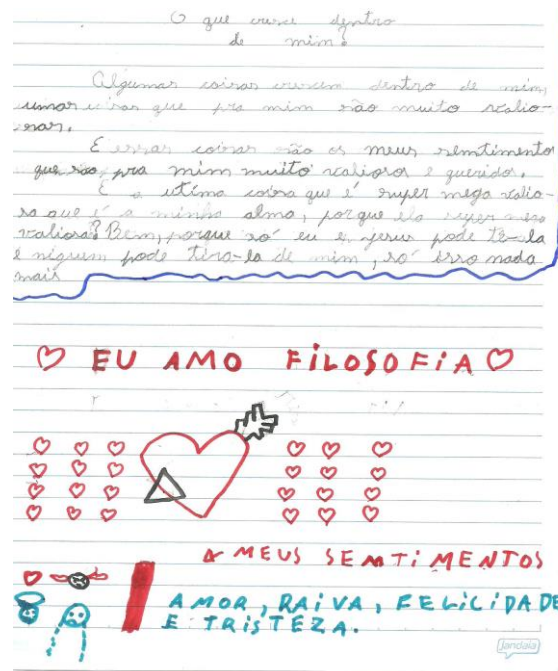 O que cresce dentro
de mim?
Algumas coisas crescem dentro de mim,
umas coisas que pra mim são muito valio-
sas.
E essas coisas são os meus semtimento
que são pra mim muito valiosos e querido.
E a utima coisa que é super mega valio-
sa que é a minha alma, porque ela super mega
valiosa? Bem, porque só eu e jesus pode tê-la
e niguem pode tira-la de mim, só isso nada
mais
EU AMO FILOSOFIA
MEUS SEMTIMENTOS
AMOR, RAIVA, FELICIDADE
E TRISTEZA.
jandaia